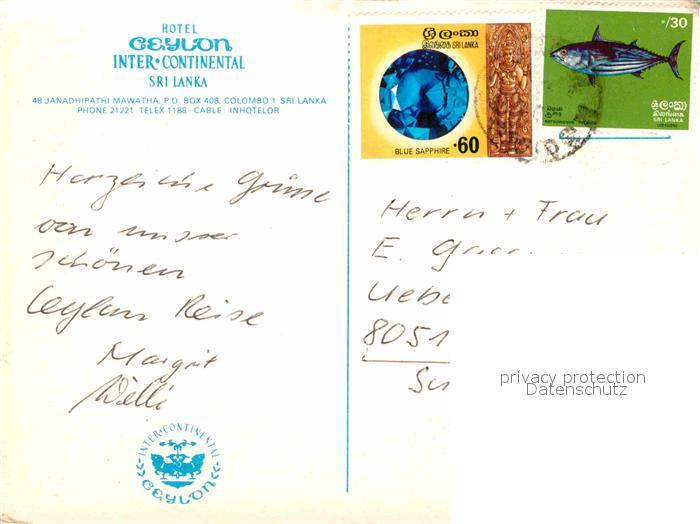 HOTEL
CEYLON
INTER·CONTINENTAL
SRI LANKA
48 JANADHIPATHI MAWATHA, P.O. BOX 408, COLOMBO 1 SRI LANKA
PHONE 21221 · TELEX 1188 · CABLE: INHOTELOR
ශ්‍රී ලංකා
இலங்கை SRI LANKA
BLUE SAPPHIRE
·60
/30
ශ්‍රී ලංකා
இலங்கை
SRI LANKA
Herzliche Grüsse
von unser
schönen
Ceylon Reise
Margrit
Willi
Herrn + Frau
E.
8051
privacy protection
Datenschutz
INTER·CONTINENTAL
CEYLON